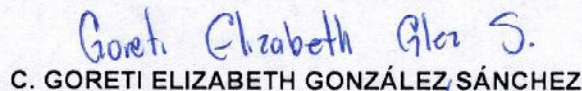 Goreti Elizabeth Glez S.
C. GORETI ELIZABETH GONZÁLEZ SÁNCHEZ